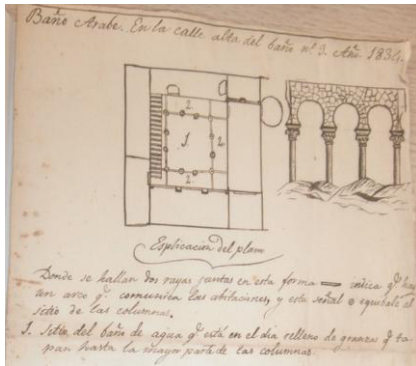 Baño Arabe. En la calle alta del baño nº 3. Año 1834.
2.
1.
2.
2.
Esplicacion del plano
Donde se hallan dos rayas juntas en esta forma = indica q.e hay
un arco q.e comunica las abitaciones, y esta señal o equivale al
sitio de las columnas.
1. Sitio del baño de agua q.e está en el dia relleno de granzas q.e ta-
pan hasta la mayor parte de las columnas.